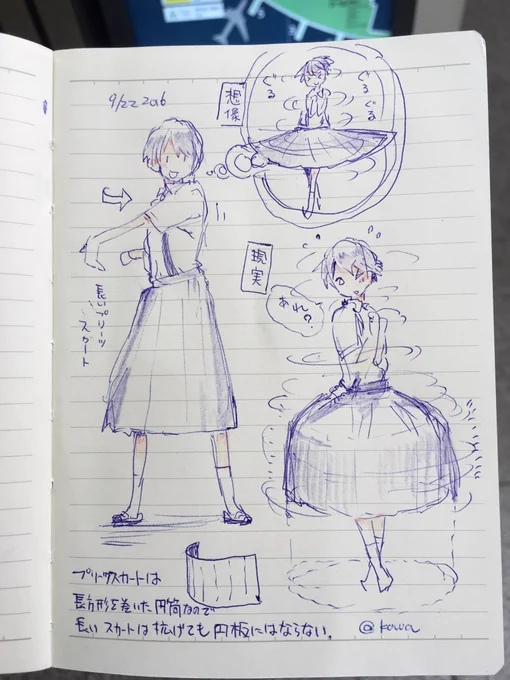 9/22 2016
想像
ぐる
ぐる
ぐる
長いプリーツ
スカート
現実
あれ?
プリーツスカートは
長方形を巻いた円筒なので
長いスカートは拡げても円板にはならない。
@kowa